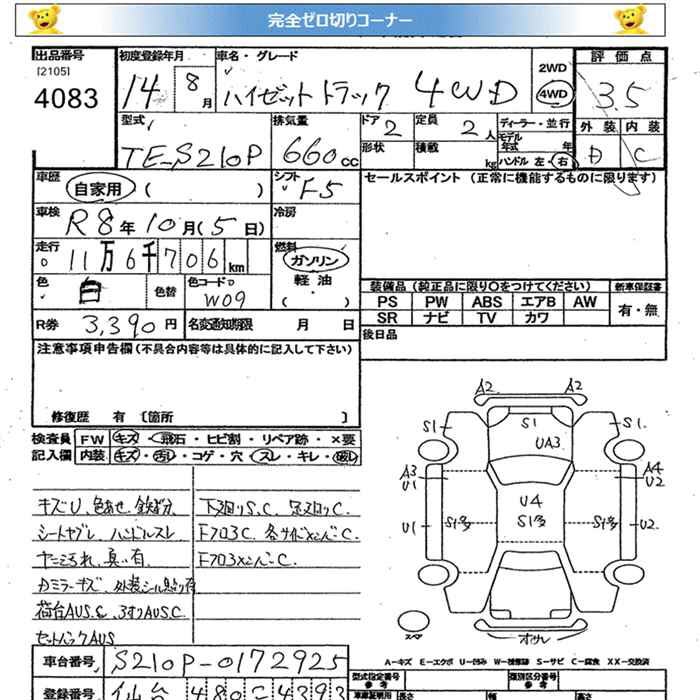 完全ゼロ切りコーナー
出品番号 初度登録年月 車名・グレード 2WD 評価点
[2105]
4083 14年 8月 ハイゼットトラック 4WD 4WD 3.5
型式 排気量 ドア 定員 ディーラー・並行 外装 内装
TE-S210P 660cc 2 2人 モデル年式 年 D C
形状 積載 kg ハンドル 左・右
車歴 自家用 ( ) シフト F5 セールスポイント (正常に機能するものに限ります)
車検 R8年10月(5日) 冷房
走行 11万6千706km 燃料 ガソリン
軽油
( )
色 白 色替 色コードNo W09
装備品 (純正品に限り○をつけてください) 新車保証書
PS PW ABS エアB AW 有・無
SR ナビ TV カワ
R券 3,390円 名変通知期限 月 日 後日品
注意事項申告欄 (不具合内容等は具体的に記入して下さい)
修復歴 有 〔箇所 〕
検査員 FW キズ・飛石・ヒビ割・リペア跡・×要
記入欄 内装 キズ・汚れ・コゲ・穴・スレ・キレ・破レ
キズU、色あせ、鉄粉分 下廻りS.C.
シートヤブレ、ハンドルスレ FフロアC.
ヤニ汚れ、臭い有 FフロアメンバーC.
ドアミラーキズ、外装シール貼り有
荷台AUS.C、アオリAUS.C.
セットバックAUS
A2 A2
S1 S1 S1
UA3
A3 A4
U1 U2
U4
U1 S1多 S1多 S1多 U2
スペア
A-キズ E-エクボ U-凹み W-補修跡 S-サビ C-腐食 XX-交換済
車台番号 S210P-0172925 型式指定番号 類別区分番号
登録番号 仙台 480 そ 4393 長さ 幅 高さ